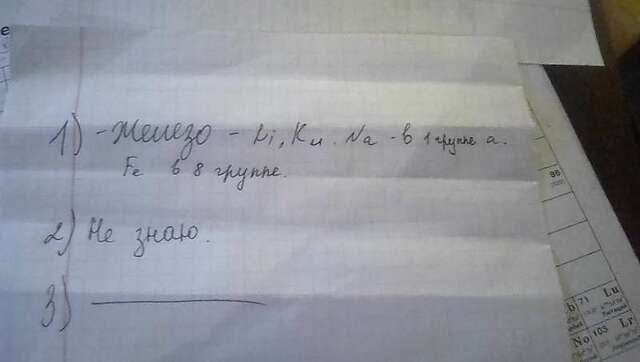 1) - Железо - Li, K и Na - в 1 группе а.
Fe в 8 группе.
2) Не знаю.
3)
96
b 71 Lu
No 103 Lr